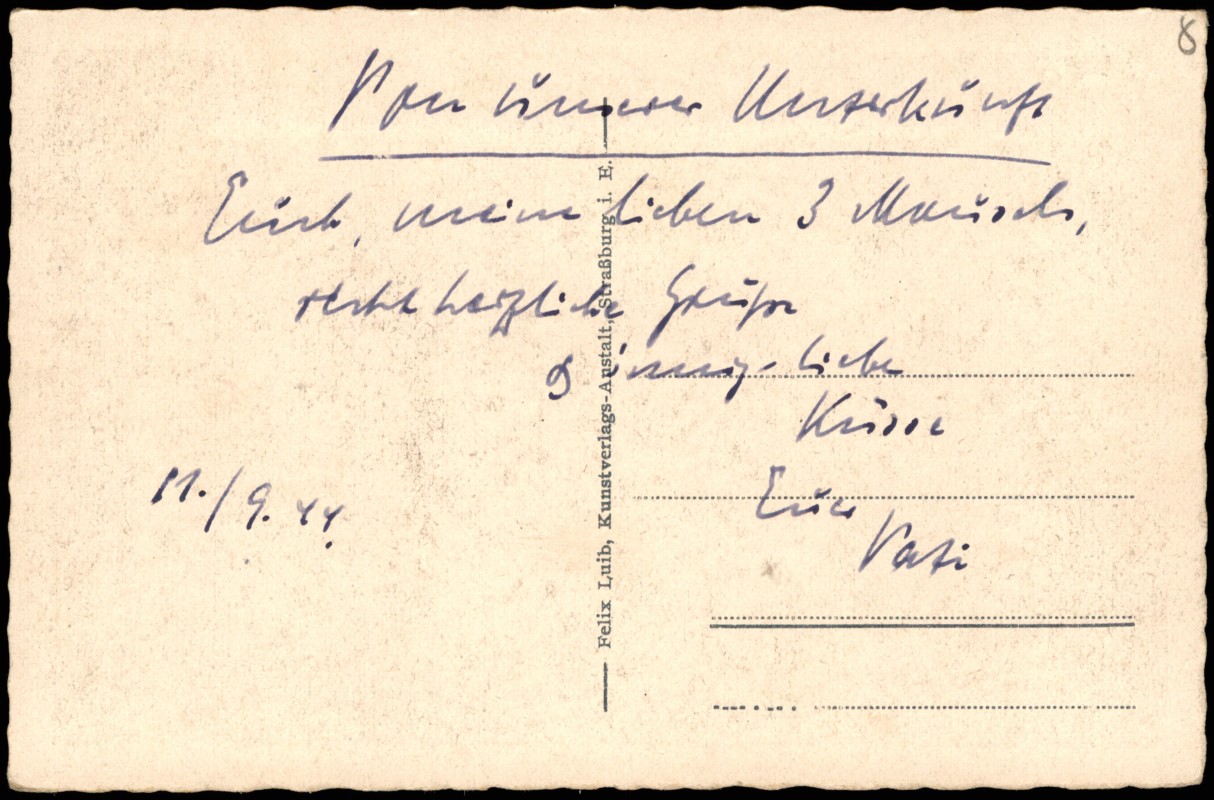 8
Von unserer Unterkunft
Euch, meine lieben 3 Mausels,
recht herzliche Grüße
& innig-liebe
Küsse
Euer
Vati
11./9. 44.
Felix Luib, Kunstverlags-Anstalt, Straßburg i. E.